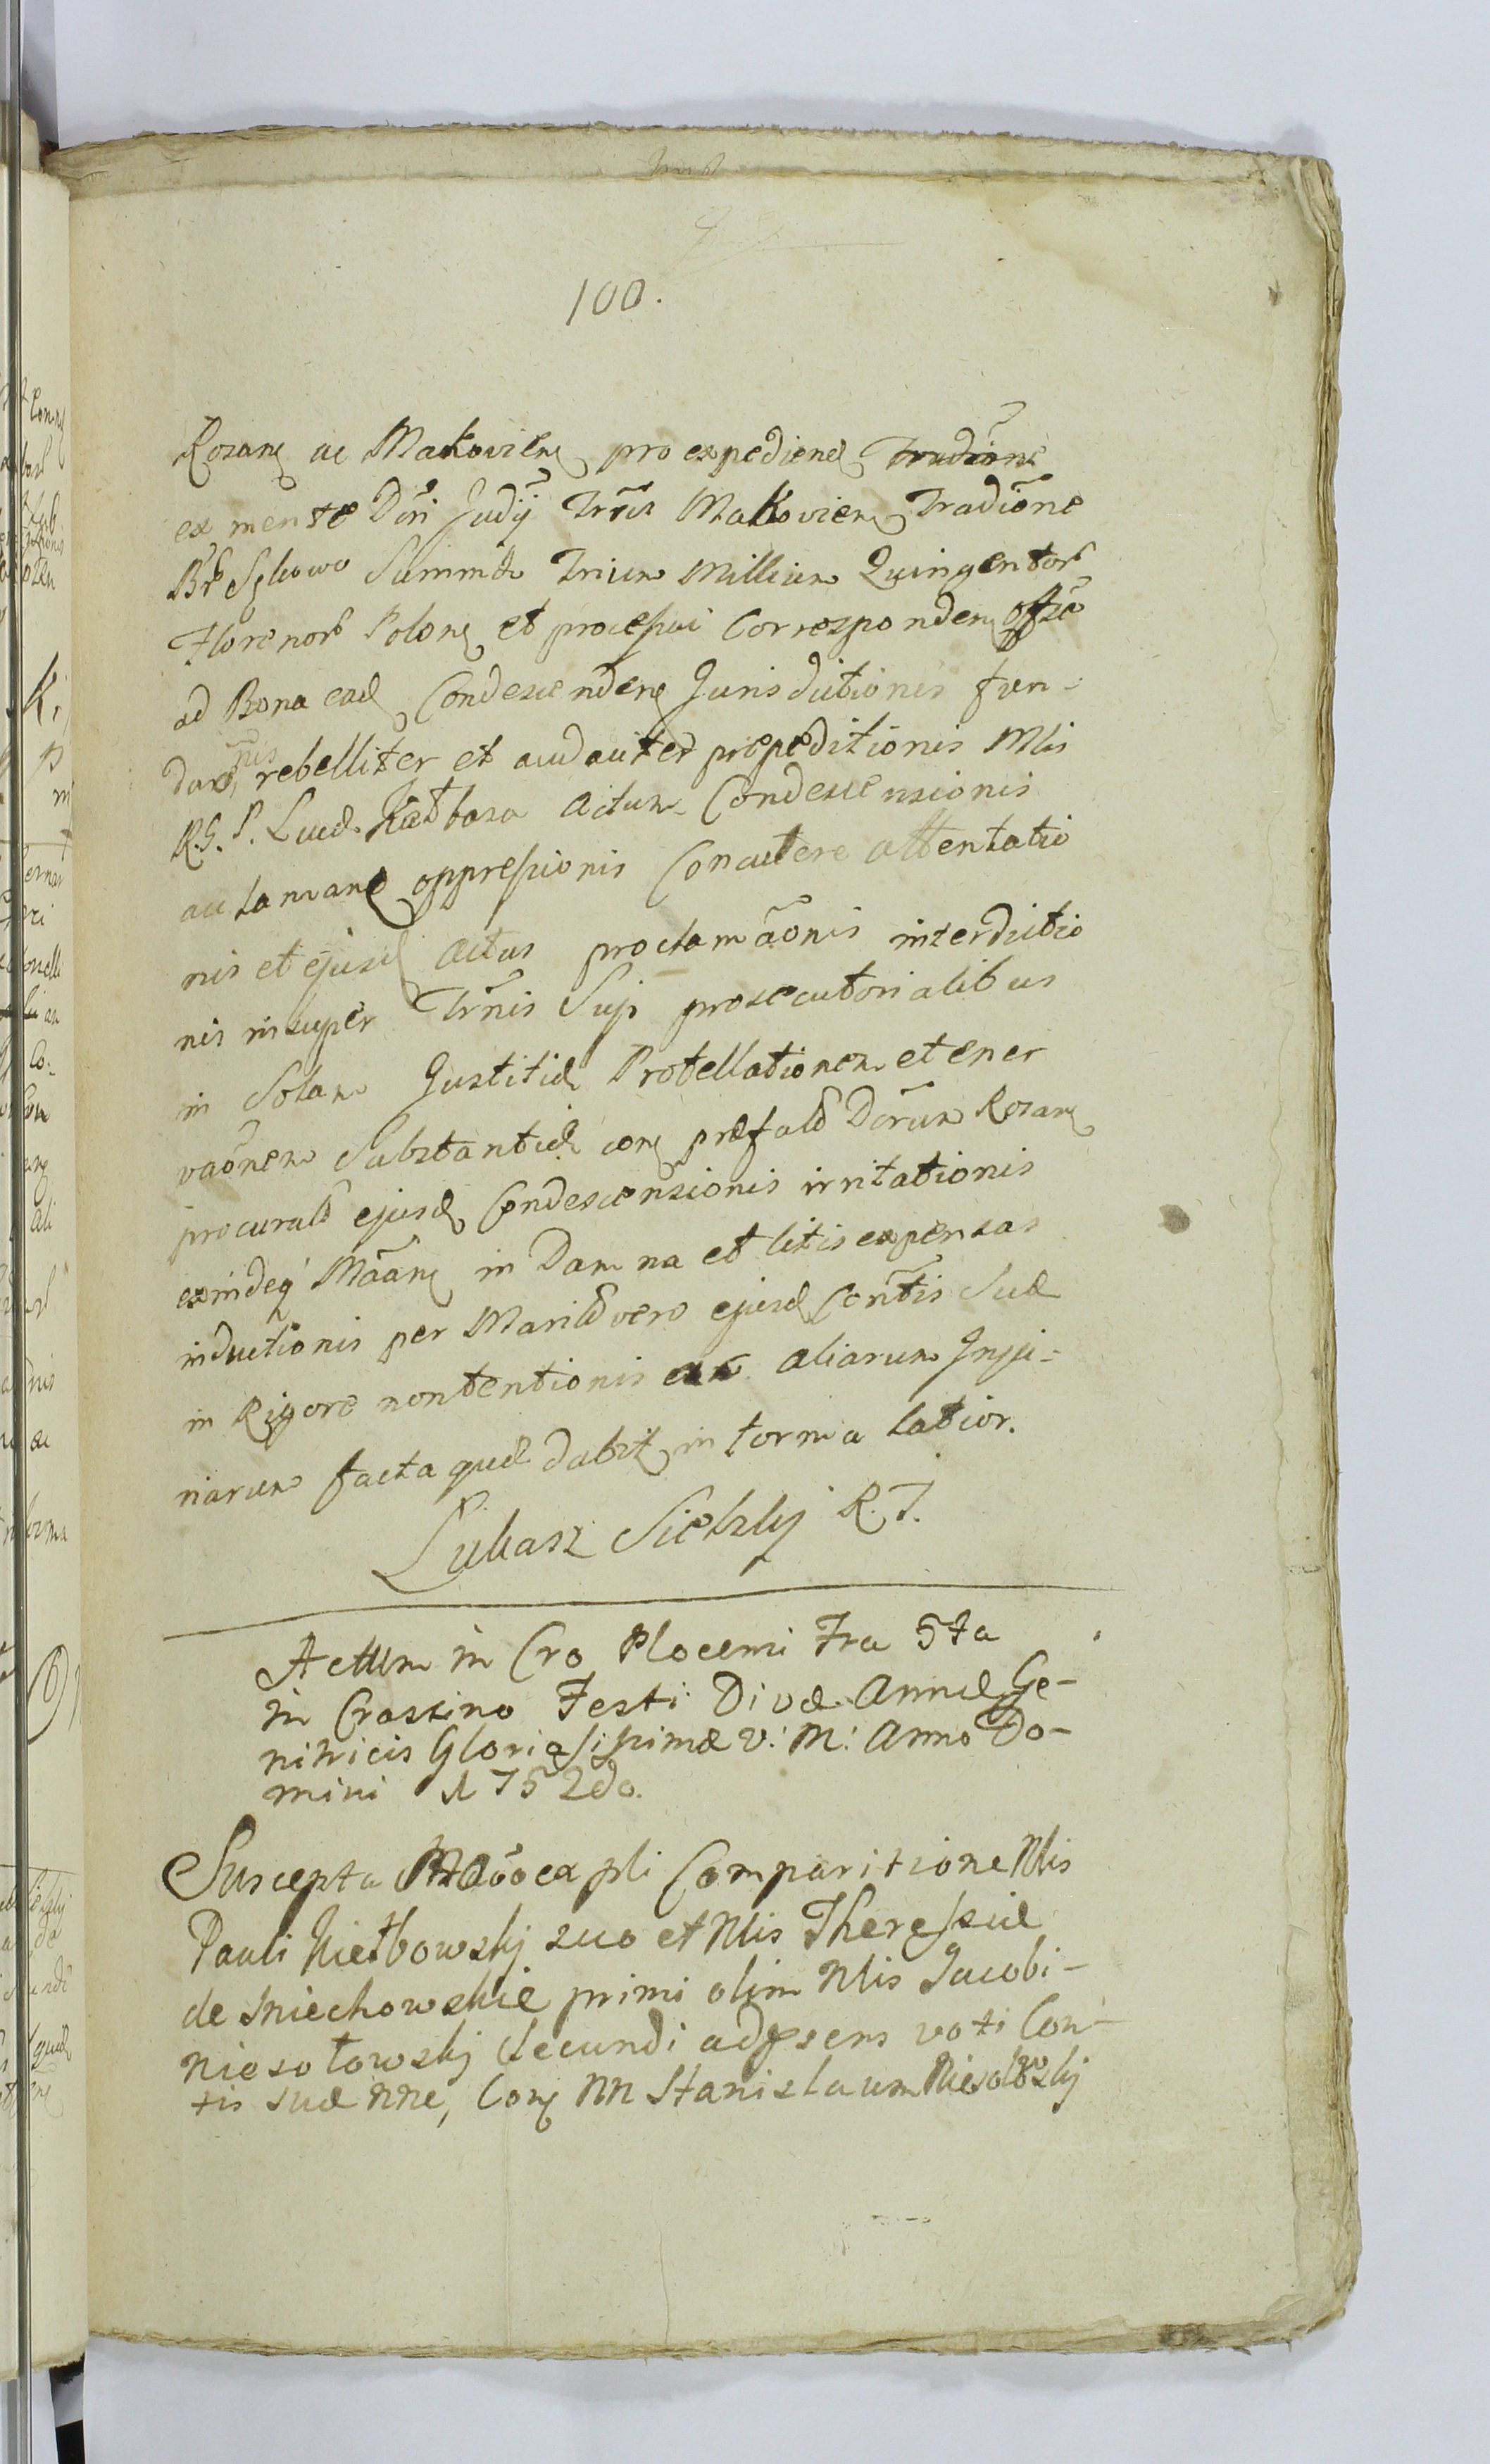 100.
Rozanę ac Makovienę pro expedienđ Tradiõne
ex mente Dñi Judÿ Trrîs Makovienę Tradiõne
Summæ Trium Millium Quingentor
Florenor Polonę et processui Correspondenę offse
ad Bona eadę Condescendenę Jurisdictionis fun-
rebelliter et audaciter præpeditionis Mlis
R. G. P. Lud. Actum Condescensionis
ac tamanę oppressionis Concutere attentatio
nis et ejusdę Actus proclamãonis interdictio
nis insuper Trñis Suÿ prosecutorialibus
in Solam Justitiæ Protellationem et ener
vaõnem Substantiæ conę præfatô Dõrum Rozanę
procuratô ejusdę Condescensionis irritationis
exindeq Mãanę in Damna et litis expensas
inductionis per Maritô vero ejusdę Coñtis Suæ
in Rigore nontentionis ac aliarum Injji-
riarum facta quæ dabit in forma latior.
Lukasz Sielsky R. T.
Actum in Cro Plocensi Fra 5ta
in Crastino Festi Divæ Annæ Ge-
nitricis Gloriosissimæ V: M: Anno Do-
mini 1752do.
Suscepta Mãoe ex pli Comparitione Nlis
Pauli Nietbowsky suo et Nlis Theressiæ
de Sniechowskie primi olim Nlis Jacobi-
Niesotowsky Secundi adpsens voti Con-
tis suæ nñe, Conę NN Stanislaum Niesotowsky